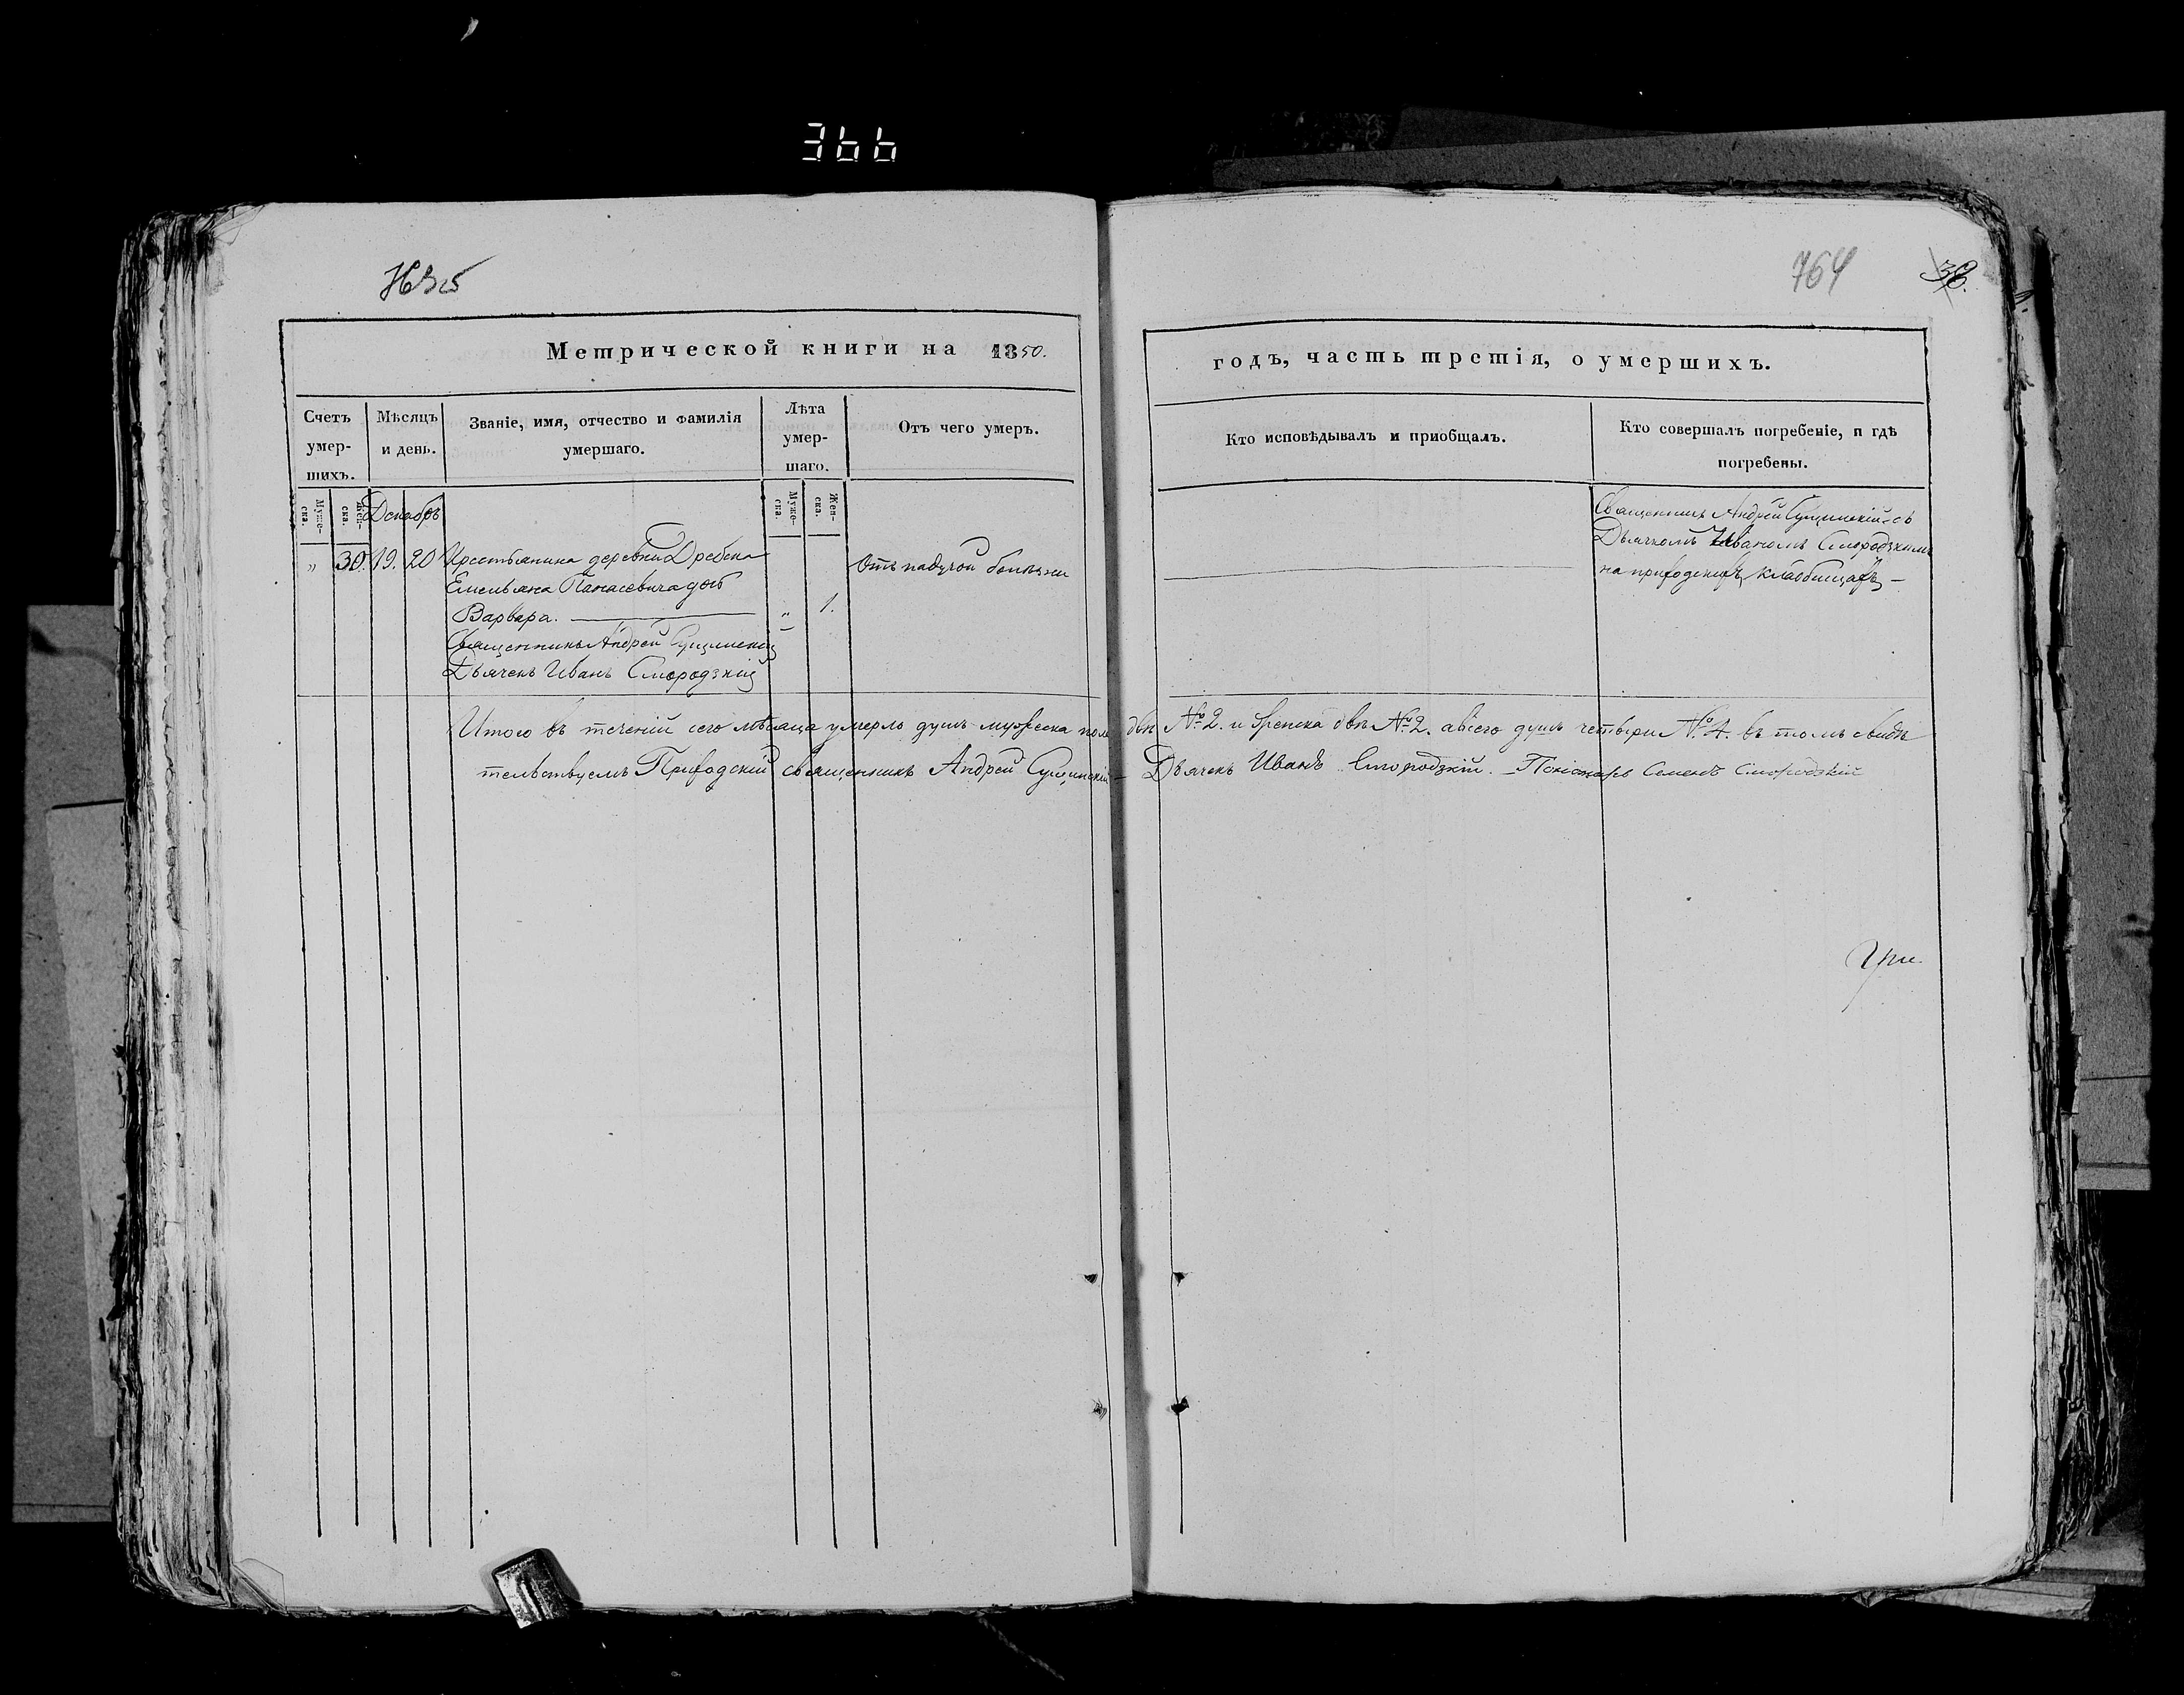 366
764
38.
Метрической книги на 1850.
годъ, часть третія, о умершихъ.
Счетъ умер-шихъ.
Мѣсяцъ и день.
Званіе, имя, отчество и фамилія умершаго.
Лѣта умер-шаго.
Отъ чего умеръ.
Кто исповѣдывалъ и приобщалъ.
Кто совершалъ погребеніе, и гдѣ погребены.
Муже-ска.
Жен-ска.
Муже-ска.
Жен-ска.
Декабрь
„ 30. 19. 20 Крестьянина деревни
Емельяна Панасевича дочь
Варвара. „ 1.
Священникъ Андрей Сущинскій
Дьячекъ Иванъ Смородзкій
Отъ падучой болѣзни
Священникъ Андрей Сущинскій съ
Дьячкомъ Иваномъ Смородзкимъ
на приходскихъ кладбищахъ
Итого въ теченіи сего мѣсяца умерло душъ мужеска пола двѣ № 2. и женска двѣ № 2. а всего душъ четыри № 4. въ томъ свидѣ
тельствуемъ Приходскій священникъ Андрей Сущинскій – Дьячекъ Иванъ Смородзкій. – Пономарь Семенъ Смородзкій